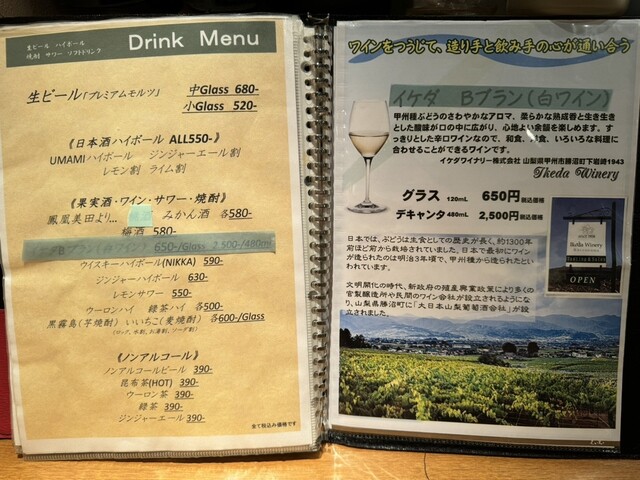 生ビール ハイボール
焼酎 サワー ソフトドリンク
Drink Menu
生ビール「プレミアムモルツ」 中Glass 680-
小Glass 520-
《日本酒ハイボール ALL550-》
UMAMIハイボール ジンジャーエール割
レモン割 ライム割
《果実酒・ワイン・サワー・焼酎》
鳳凰美田より… みかん酒 各580-
梅酒 580-
Bプラン(白ワイン) 650-/Glass 2,500/480ml
ウイスキーハイボール(NIKKA) 590-
ジンジャーハイボール 630-
レモンサワー 550-
ウーロンハイ 緑茶ハイ 各500-
黒霧島(芋焼酎) いいちこ(麦焼酎) 各600-/Glass
(ロック、水割、お湯割、ソーダ割)
《ノンアルコール》
ノンアルコールビール 390-
昆布茶(HOT) 390-
ウーロン茶 390-
緑茶 390-
ジンジャーエール 390-
全て税込み価格です
ワインをつうじて、造り手と飲み手の心が通い合う
イケダ Bプラン(白ワイン)
甲州種ぶどうのさわやかなアロマ、柔らかな熟成香と生き生き
とした酸味が口の中に広がり、心地よい余韻を楽しめます。す
っきりとした辛口ワインなので、和食、洋食、いろいろな料理に
合わせることができるワインです。
イケダワイナリー株式会社 山梨県甲州市勝沼町下岩崎1943
Ikeda Winery
グラス 120mL 650円税込価格
デキャンタ 480mL 2,500円税込価格
日本では、ぶどうは生食としての歴史が長く、約1300年
前ほど前から栽培されていました。日本で最初にワイン
が造られたのは明治3年頃で、甲州種から造られたとい
われています。
文明開化の時代、新政府の殖産興業政策により多くの
官製醸造所や民間のワイン会社が設立されるようにな
り、山梨県勝沼町に「大日本山梨葡萄酒会社」が設
立されました。
Ikeda Winery
OPEN